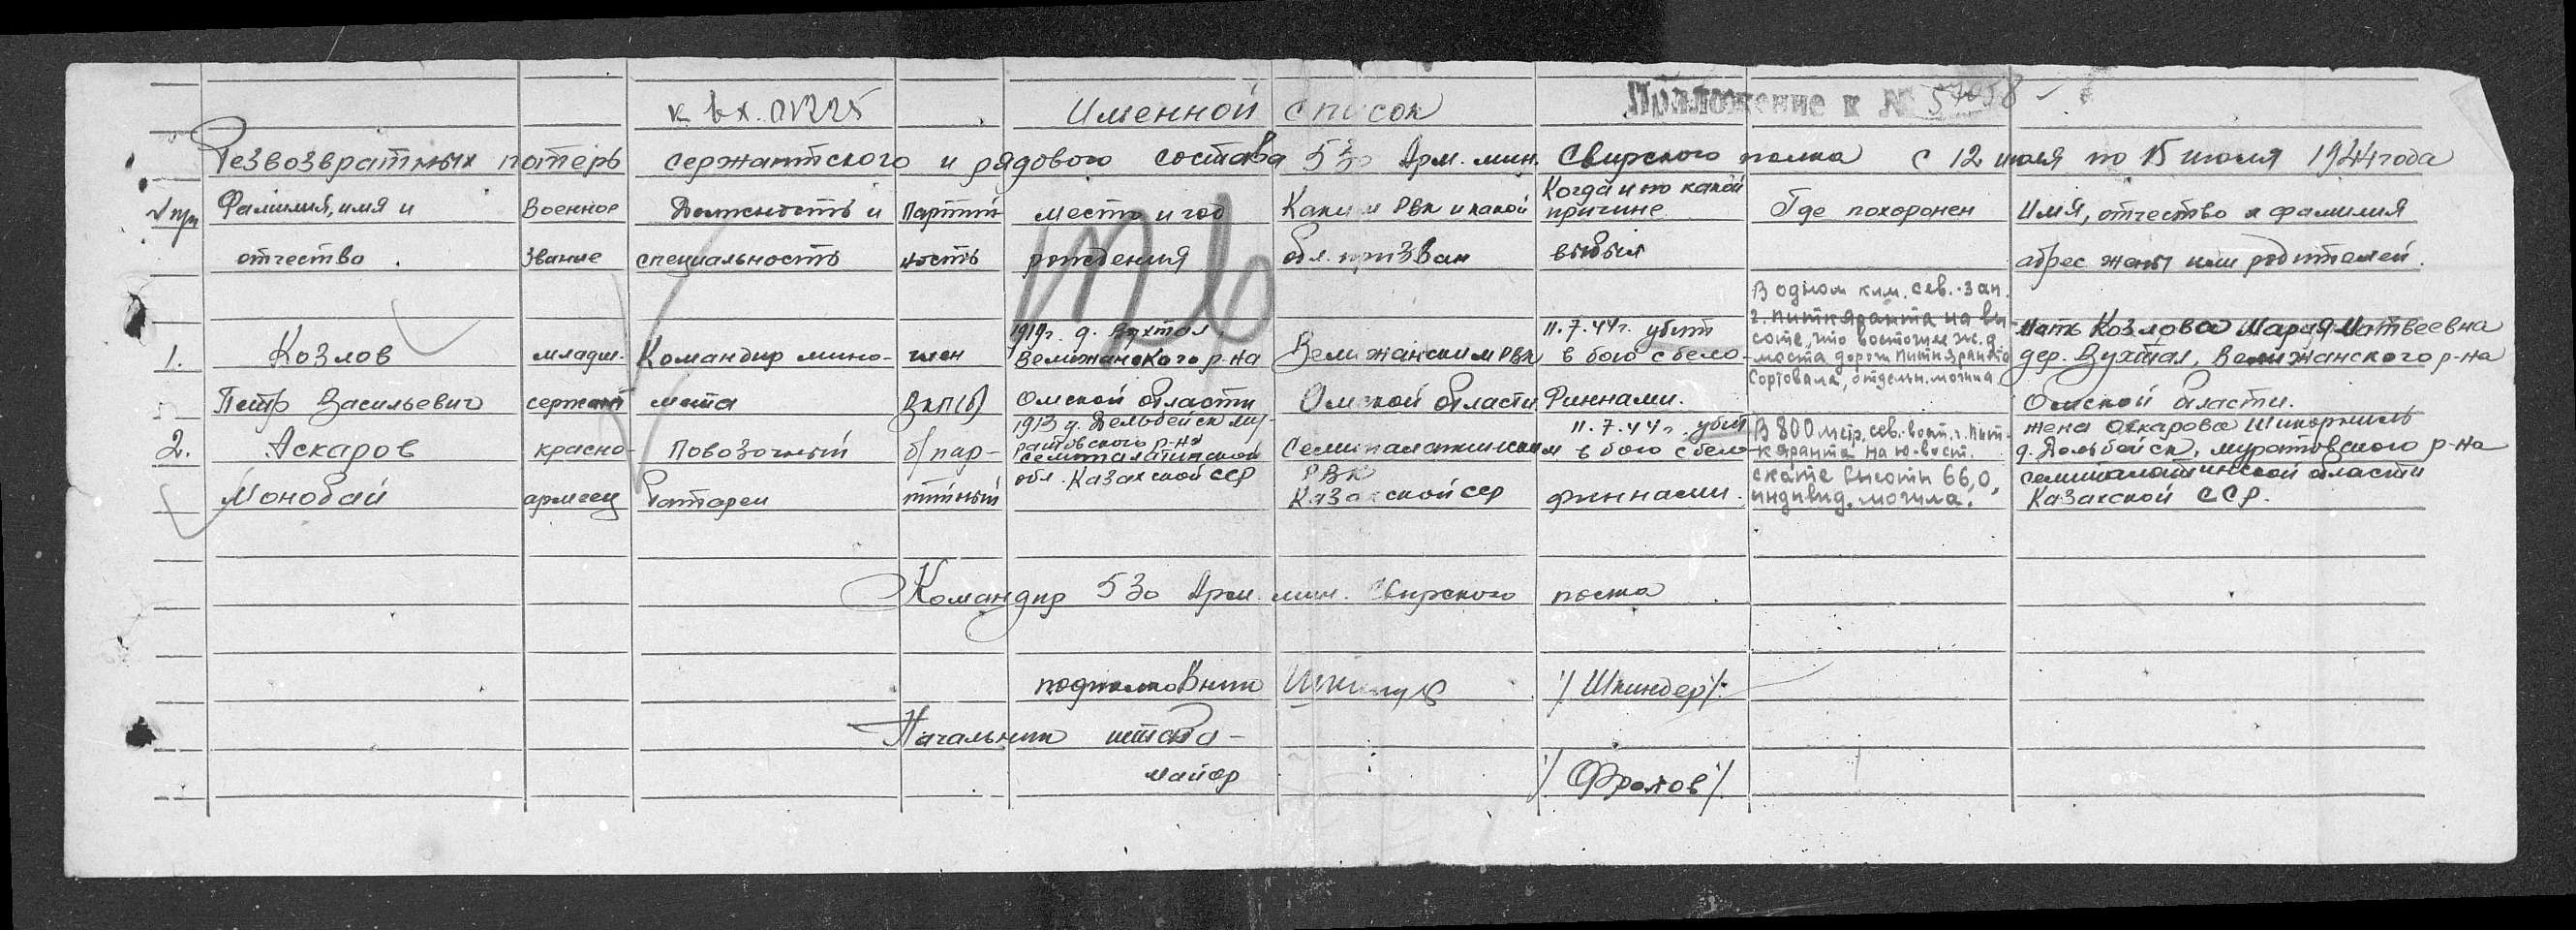 к вх. 01225
Именной список
Приложение к № 57058
Безвозвратных потерь сержантского и рядового состава 530 Арм. мин. Свирского полка с 12 июля по 15 июля 1944 года
№ п/п
Фамилия, имя и
отчество
Военное
звание
Должность и
специальность
Партий
ность
место и год
рождения
Каким РВК и какой
обл. призван
Когда и по какой
причине
выбыл
Где похоронен
Имя, отчество и фамилия
адрес жены или родителей.
1.
Козлов
Петр Васильевич
младш.
сержант
Командир мино-
мета
член
ВКП(б)
д. Вухтал,
Велижанского р-на
Омской области
Велижанским РВК
Омской области
11.7.44г. убит
в бою с бело-
Финнами.
В одном клм. сев.-зап.
г. Питкяранта на вы-
соте, что восточнее ж.д.
моста дороги Питкяранта
Сортовала, отдельн. могила.
Мать Козлова Мария Матвеевна
дер. Вухтал, Велижанского р-на
Омской области.
2.
Аскаров
Монобай
красно-
армеец
Повозочный
батареи
б/пар-
тийный
1913 д. Дельбейск му-
ратовского р-на
семипалатинской
обл. Казахской ССР
Семипалатинским
РВК
Казахской ССР
11.7.44г. убит
в бою с бело-
финнами.
В 800 метр. сев.-вост. г. Пит-
кяранта на ю-вост.
скате высоты 66,0,
индивид. могила.
жена Аскарова
д. Дельбейск, муратовского р-на
семипалатинской области
Казахской ССР.
Командир 530 Арм. мин. Свирского полка
подполковник
/Шкиндер/
Начальник штаба-
майор
/Фролов/